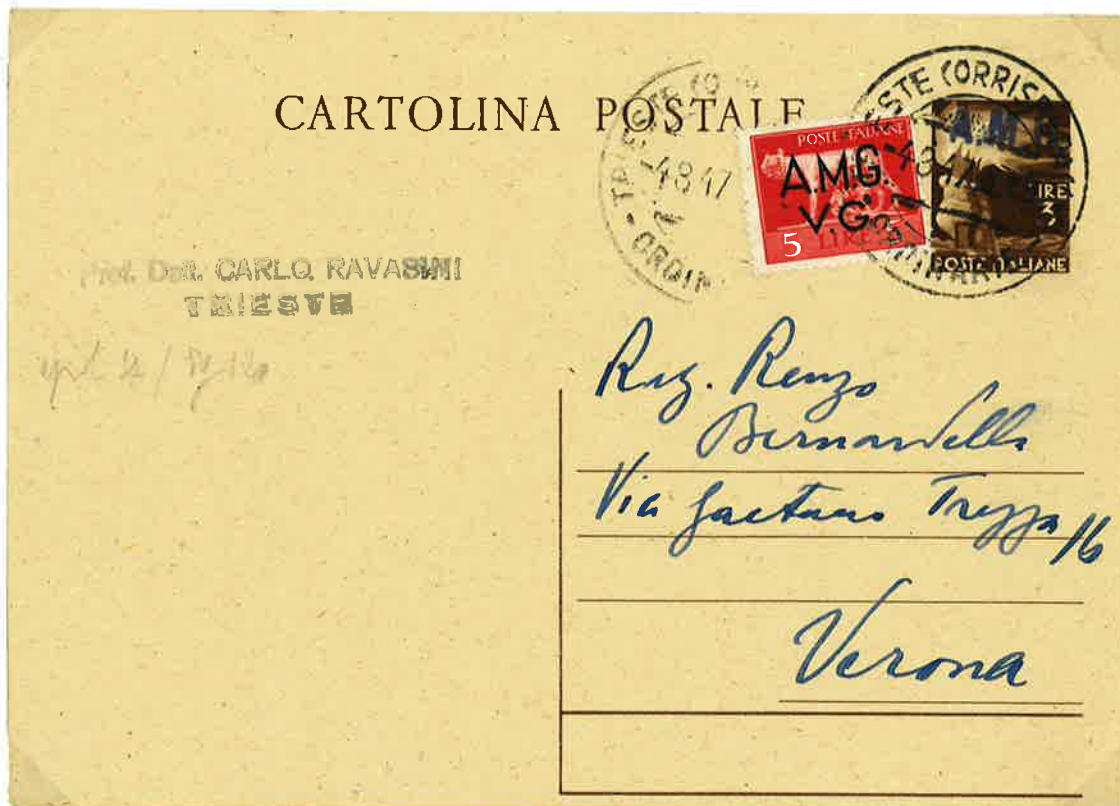 CARTOLINA POSTALE
TRIESTE
-4 8 47
ORDIN
POSTE ITALIANE
A.M.G.
V.G.
5
LIRE
ESTE CORRISP
-4 8 47
A.M.G.
LIRE
3
POSTE ITALIANE
Prof. Dott. CARLO RAVASINI
TRIESTE
Rag. Renzo
Bernardelli
Via Gaetano Trezza 16
Verona